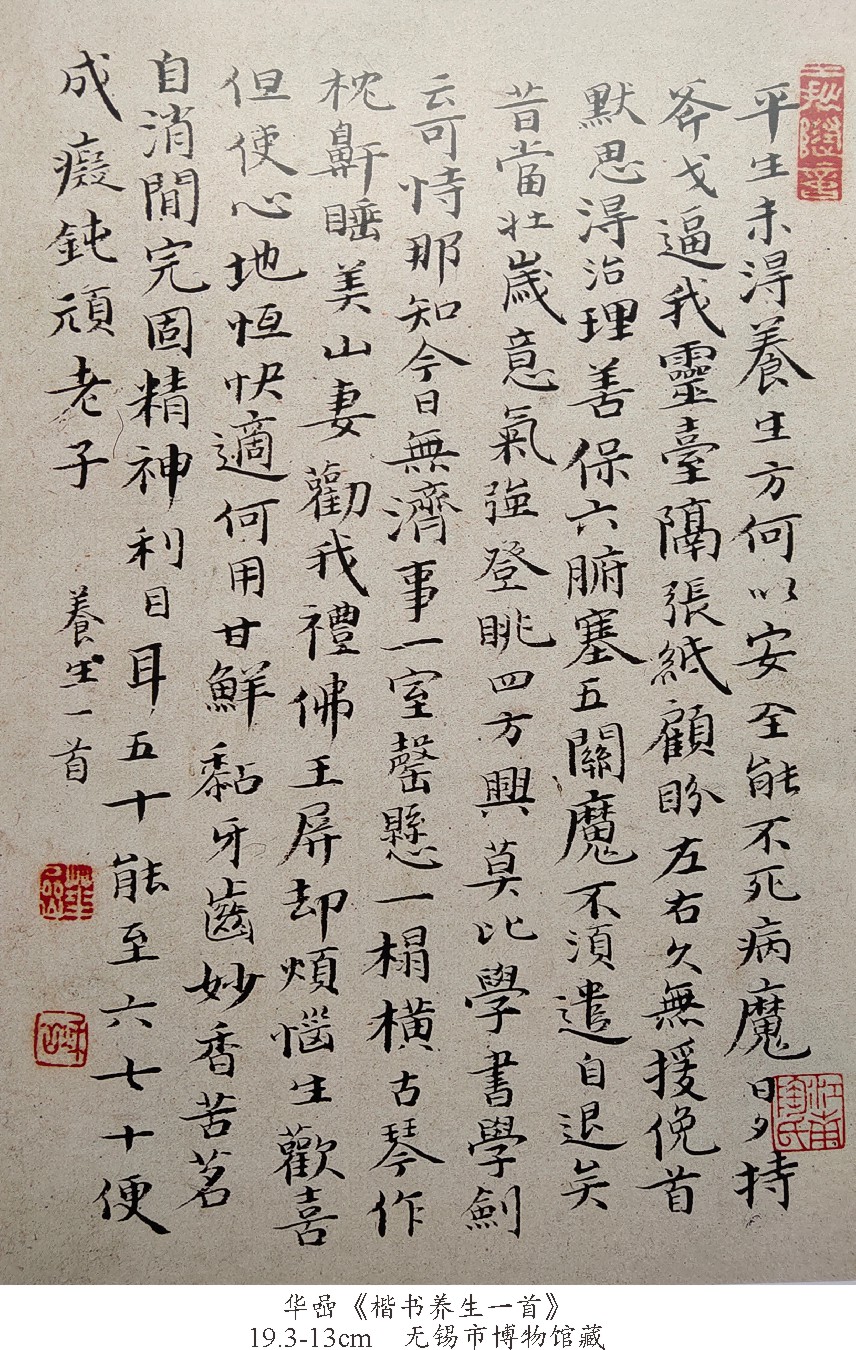 平生未淂養生方何以安全能不死病魔日夕持
斧戈逼我靈臺隔張紙顧盼左右久無援俛首
默思淂治理善保六腑塞五關魔不湏遣自退矣
昔當壯歲意氣強登眺四方興莫比學書學劍
云可恃那知今日無濟事一室罄懸一榻橫古琴作
枕鼾睡美山妻勸我禮佛王屏却煩惱生歡喜
但使心地恒快適何用甘鮮黏牙齒妙香苦茗
自消閒完固精神利目耳五十能至六七十便
成癡鈍頑老子
養生一首
江南陶氏
华喦《楷书养生一首》
19.3-13cm 无锡市博物馆藏